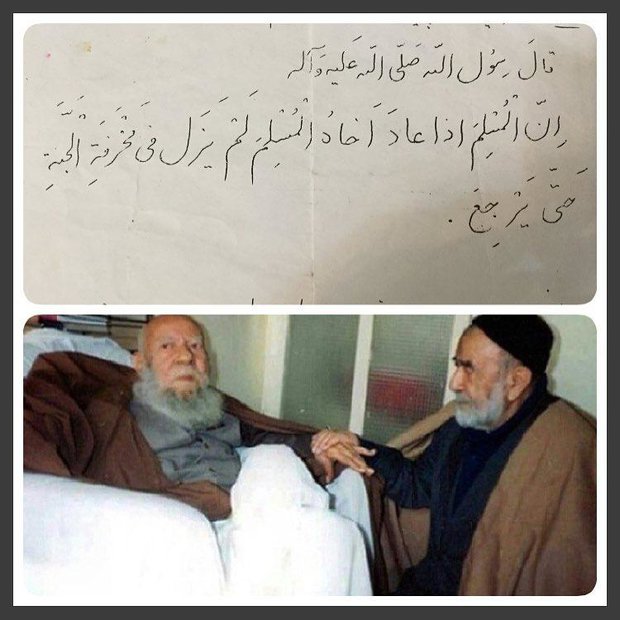 قالَ رسُول اللّه صَلّی اللّه عَلیه وَآله
اِنّ الْمُسْلِمَ اذا عادَ اَخاهُ الْمُسْلِمَ لَمْ یَزَل فی مَخْرَفَةِ الْجَنَّةِ
حَتّی یَرْجِعَ .